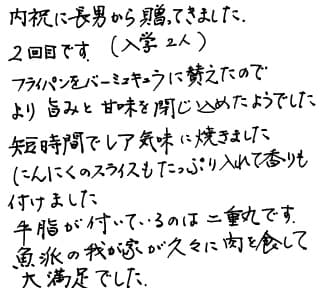 内祝に長男から贈ってきました.
2回目です. (入学 2人)
フライパンをバーミュキュラに替えたので
より 旨みと 甘味を閉じ込めたようでした
短時間でレア気味に焼きました
にんにくのスライスもたっぷり入れて香りも
付けました
牛脂が付いているのは 二重丸です.
魚派の我が家が久々に肉を食して
大満足でした.